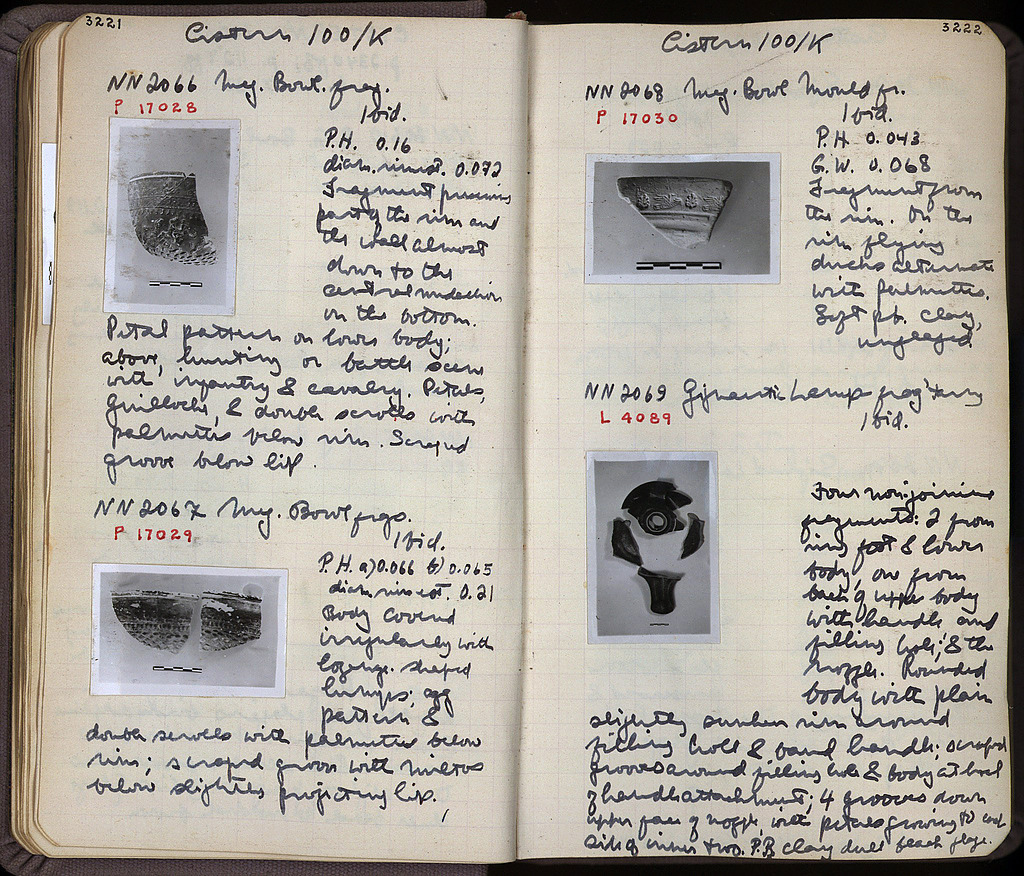 3221
Cistern 100/K
NN2066 Meg. Bowl frag.
P 17028
Ibid.
P.H. 0.16
diam. rim est. 0.072
Fragment preserving
part of the rim and
the wall almost
down to the
central medallion
on the bottom.
Petal pattern on lower body;
above, hunting or battle scene
with infantry & cavalry. Petals,
guilloche, & double scrolls with
palmettes below rim. Scraped
groove below lip.
NN2067 Meg. Bowl frgs.
P 17029
Ibid.
P.H. a) 0.066 b) 0.065
diam. rim est. 0.21
Body covered
irregularly with
lozenge-shaped
lumps; egg
pattern &
double scrolls with palmettes below
rim; scraped groove with miltos
below slightly projecting lip.
3222
Cistern 100/K
NN2068 Meg. Bowl Mould fr.
P 17030
Ibid.
P.H. 0.043
G.W. 0.068
Fragment from
the rim. On the
rim flying
ducks alternate
with palmettes.
Soft clay,
unglazed.
NN2069 Gigantic Lamp frag'tary
L 4089
Ibid.
Four non-joining
fragments: 2 from
ring foot & lower
body, one from
back of upper body
with handle and
filling hole; & the
nozzle. Rounded
body with plain
slightly sunken rim around
filling hole & band handle; scraped
grooves around filling hole & body at level
of handle attachment; 4 grooves down
upper face of nozzle, with petals growing
side of inner two. P.B. clay dull black glaze.